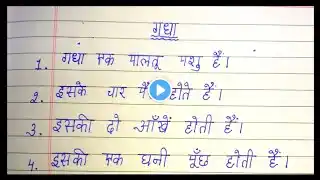 गधा
1. गधा एक पालतू पशु हैं।
2. इसके चार पैर होते हैं।
3. इसकी दो आँखें होती हैं।
4. इसकी एक घनी पूँछ होती हैं।